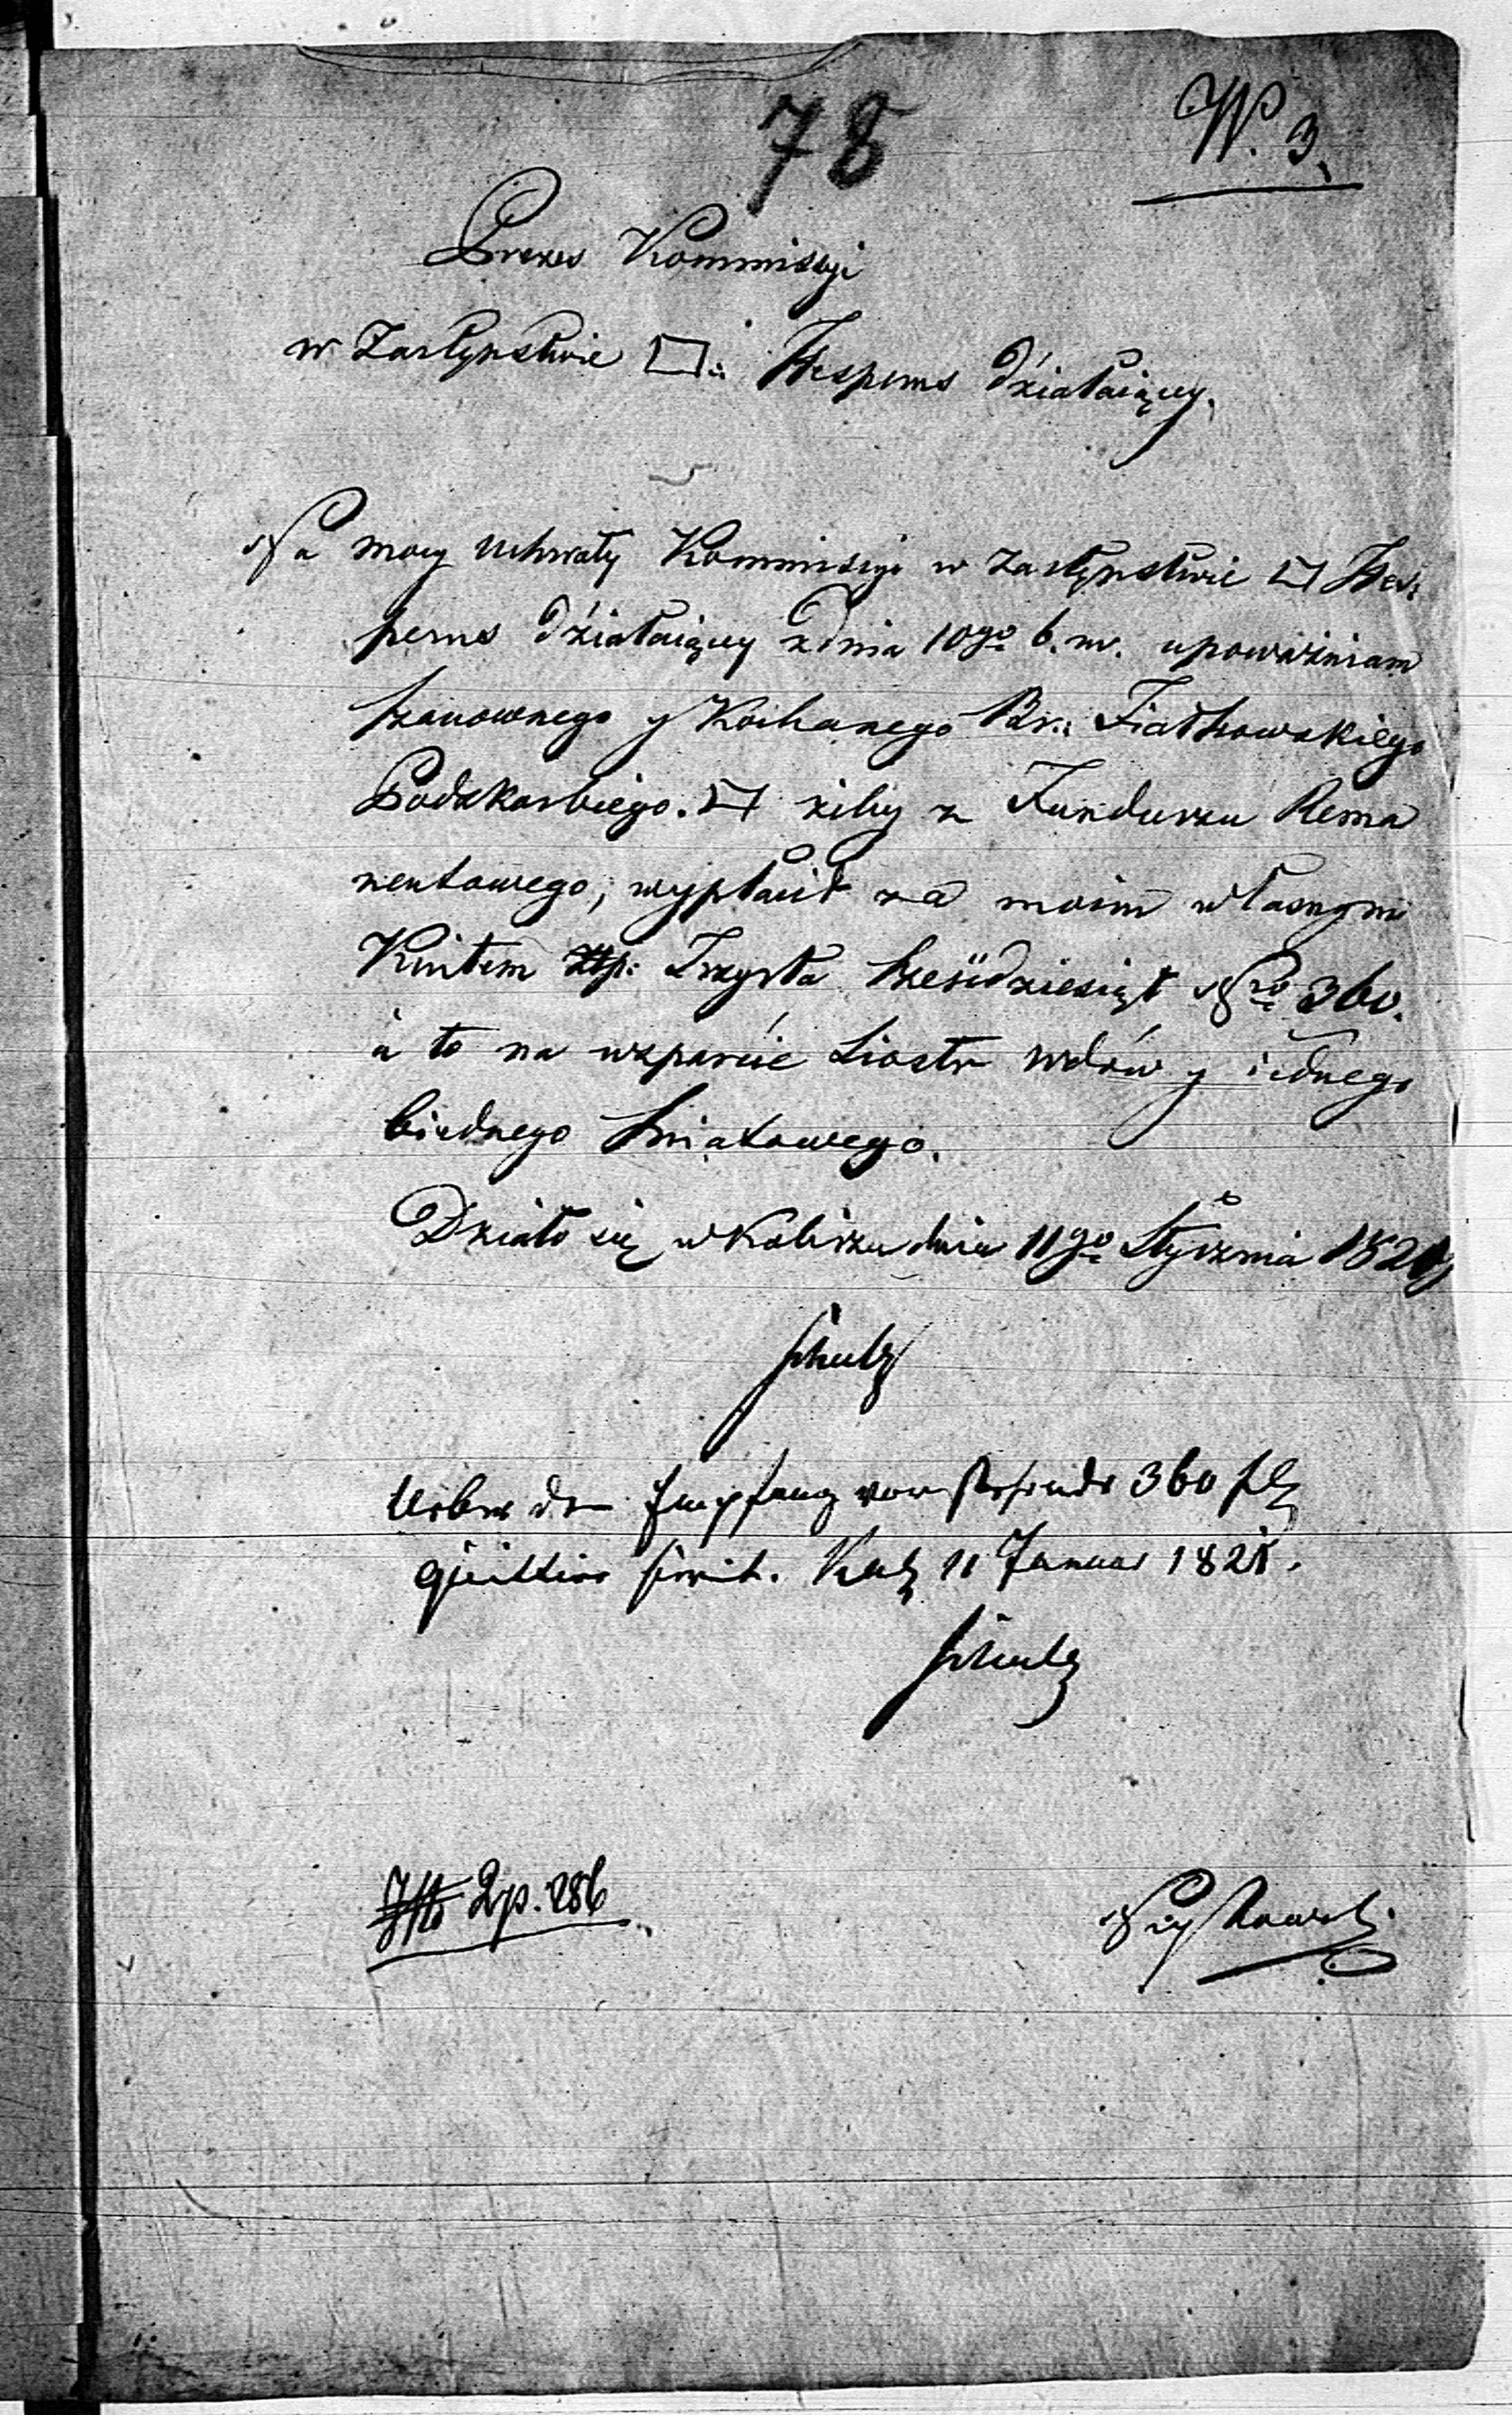 78
W. 3.
Prezes Kommissyi
w Zastępstwie □.: Hesperus działaiący.
Na mocy Uchwały Kommissyi w zastępstwie □ Hes:
perus działaiący z dnia 10go b. m. upoważniam
szanownego y Kochanego Br.: Fiałkowskiego
Podskarbiego. □ żeby z Funduszu Rema
nentowego, wypłacił za moim własnym
Kwitem Złp: Trzysta sześćdziesiąt Nro 360.
a to na wsparcie Siostr wdów y iednego
biednego Światowego.
Działo się w Kaliszu dnia 11go Stycznia 1821
Schultz
Ueber den Empfang von stehende 360 fl
quittire hiemit. Kal 11 Januar 1821.
Schultz
2 p. 286